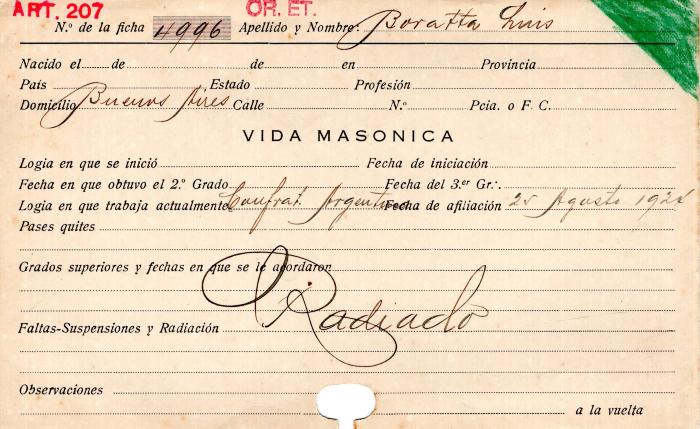 ART. 207 OR. ET.
N.º de la ficha 4996 Apellido y Nombre: Boratta Luis
Nacido el de de en Provincia
País Estado Profesión
Domicilio Buenos Aires Calle N.º Pcia. o F. C.
VIDA MASONICA
Logia en que se inició Fecha de iniciación
Fecha en que obtuvo el 2.º Grado Fecha del 3.er Gr∴
Logia en que trabaja actualmente Confrat. Argentina Fecha de afiliación Agosto
Pases quites
Grados superiores y fechas en que se le acordaron
Faltas-Suspensiones y Radiación Radiado
Observaciones
a la vuelta